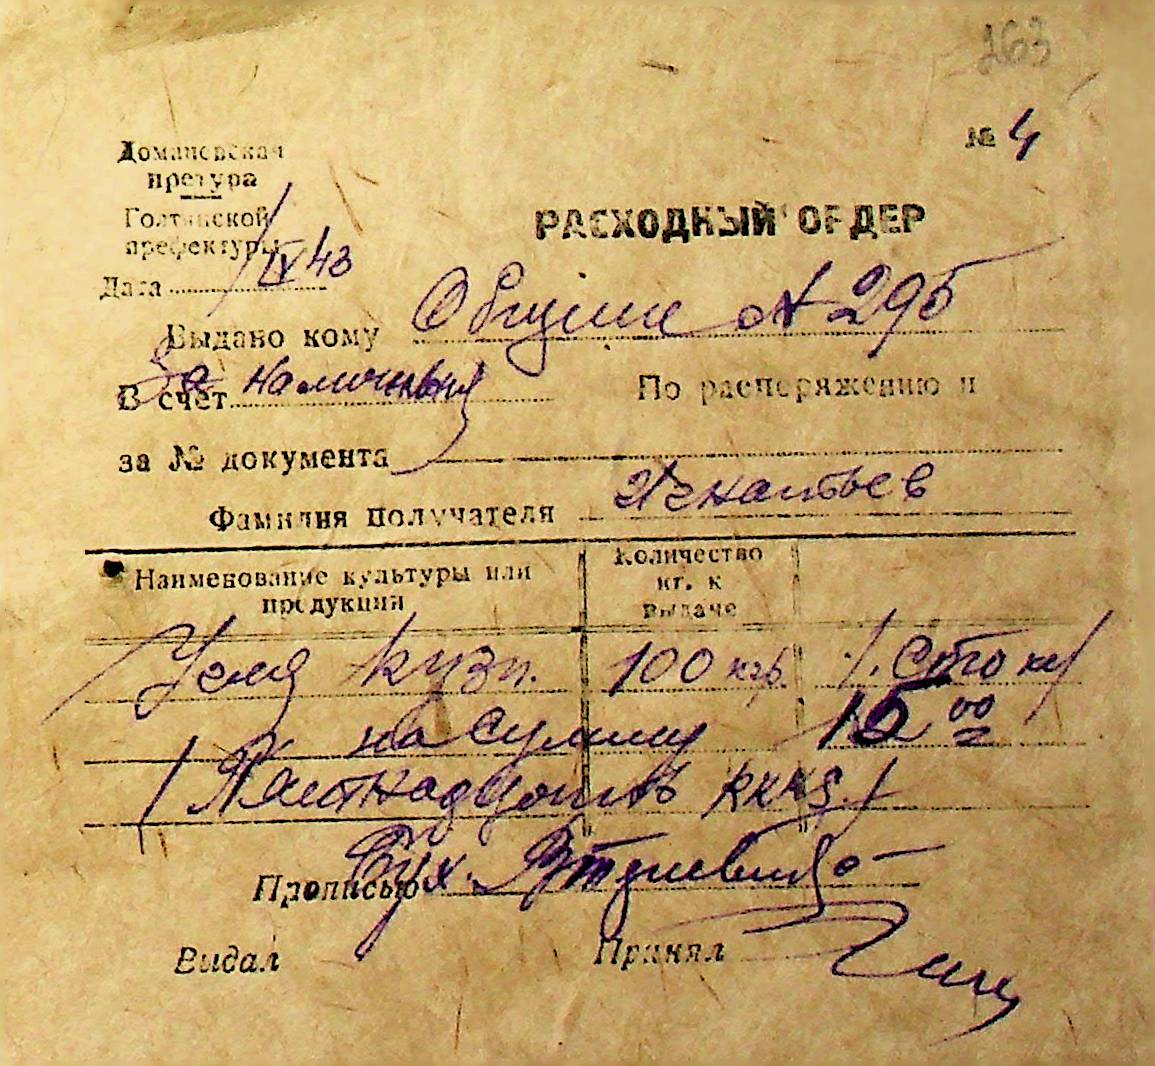 163
№ 4
Доманевская
претура
Голтянской
префектуры
Дата 1/IX 43
РАСХОДНЫЙ ОРДЕР
Выдано кому Общине № 295
В счет За наличные
По распоряжению и
за № документа
Фамилия получателя Игнатьев
Наименование культуры или продукции
Количество кг. к выдаче
Угля кузн. 100 кгр. /. сто кг/
на сумму 15 00
/ Пятнадцать ркка./
Прописью Бух.
Выдал
Принял